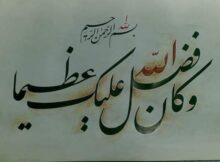 بسم الله الرحمن الرحیم
وکان فضل الله علیک عظیما